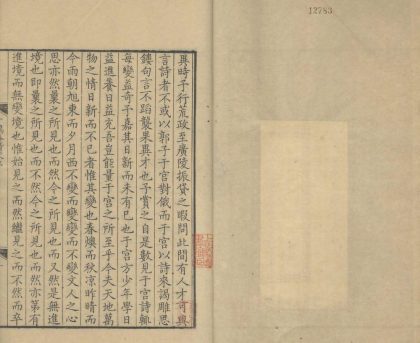 12783
異時予行荒政至廣陵振貸之暇問此間有人才可與
言詩者不或以郭子于宮對俄而于宮以詩來謁雕思
鏤句言不蹈襲果異才也予賞之自是數見于宮詩輒
每變益奇予嘉其日新而未有已也于宮方少年學日
益進養日益充吾豈能量于宮之所至乎今夫天地萬
物之情日新而不已者惟其變也春燠而秋凉昨晴而
今雨朝旭東而夕月西不變而變變而不變文人之心
思亦然曩之所見也而然今之所見也而又然是無進
境也即曩之所見也而不然今之所見也而然亦第有
進境而無變境也惟始見之而然繼見之而不然而卒